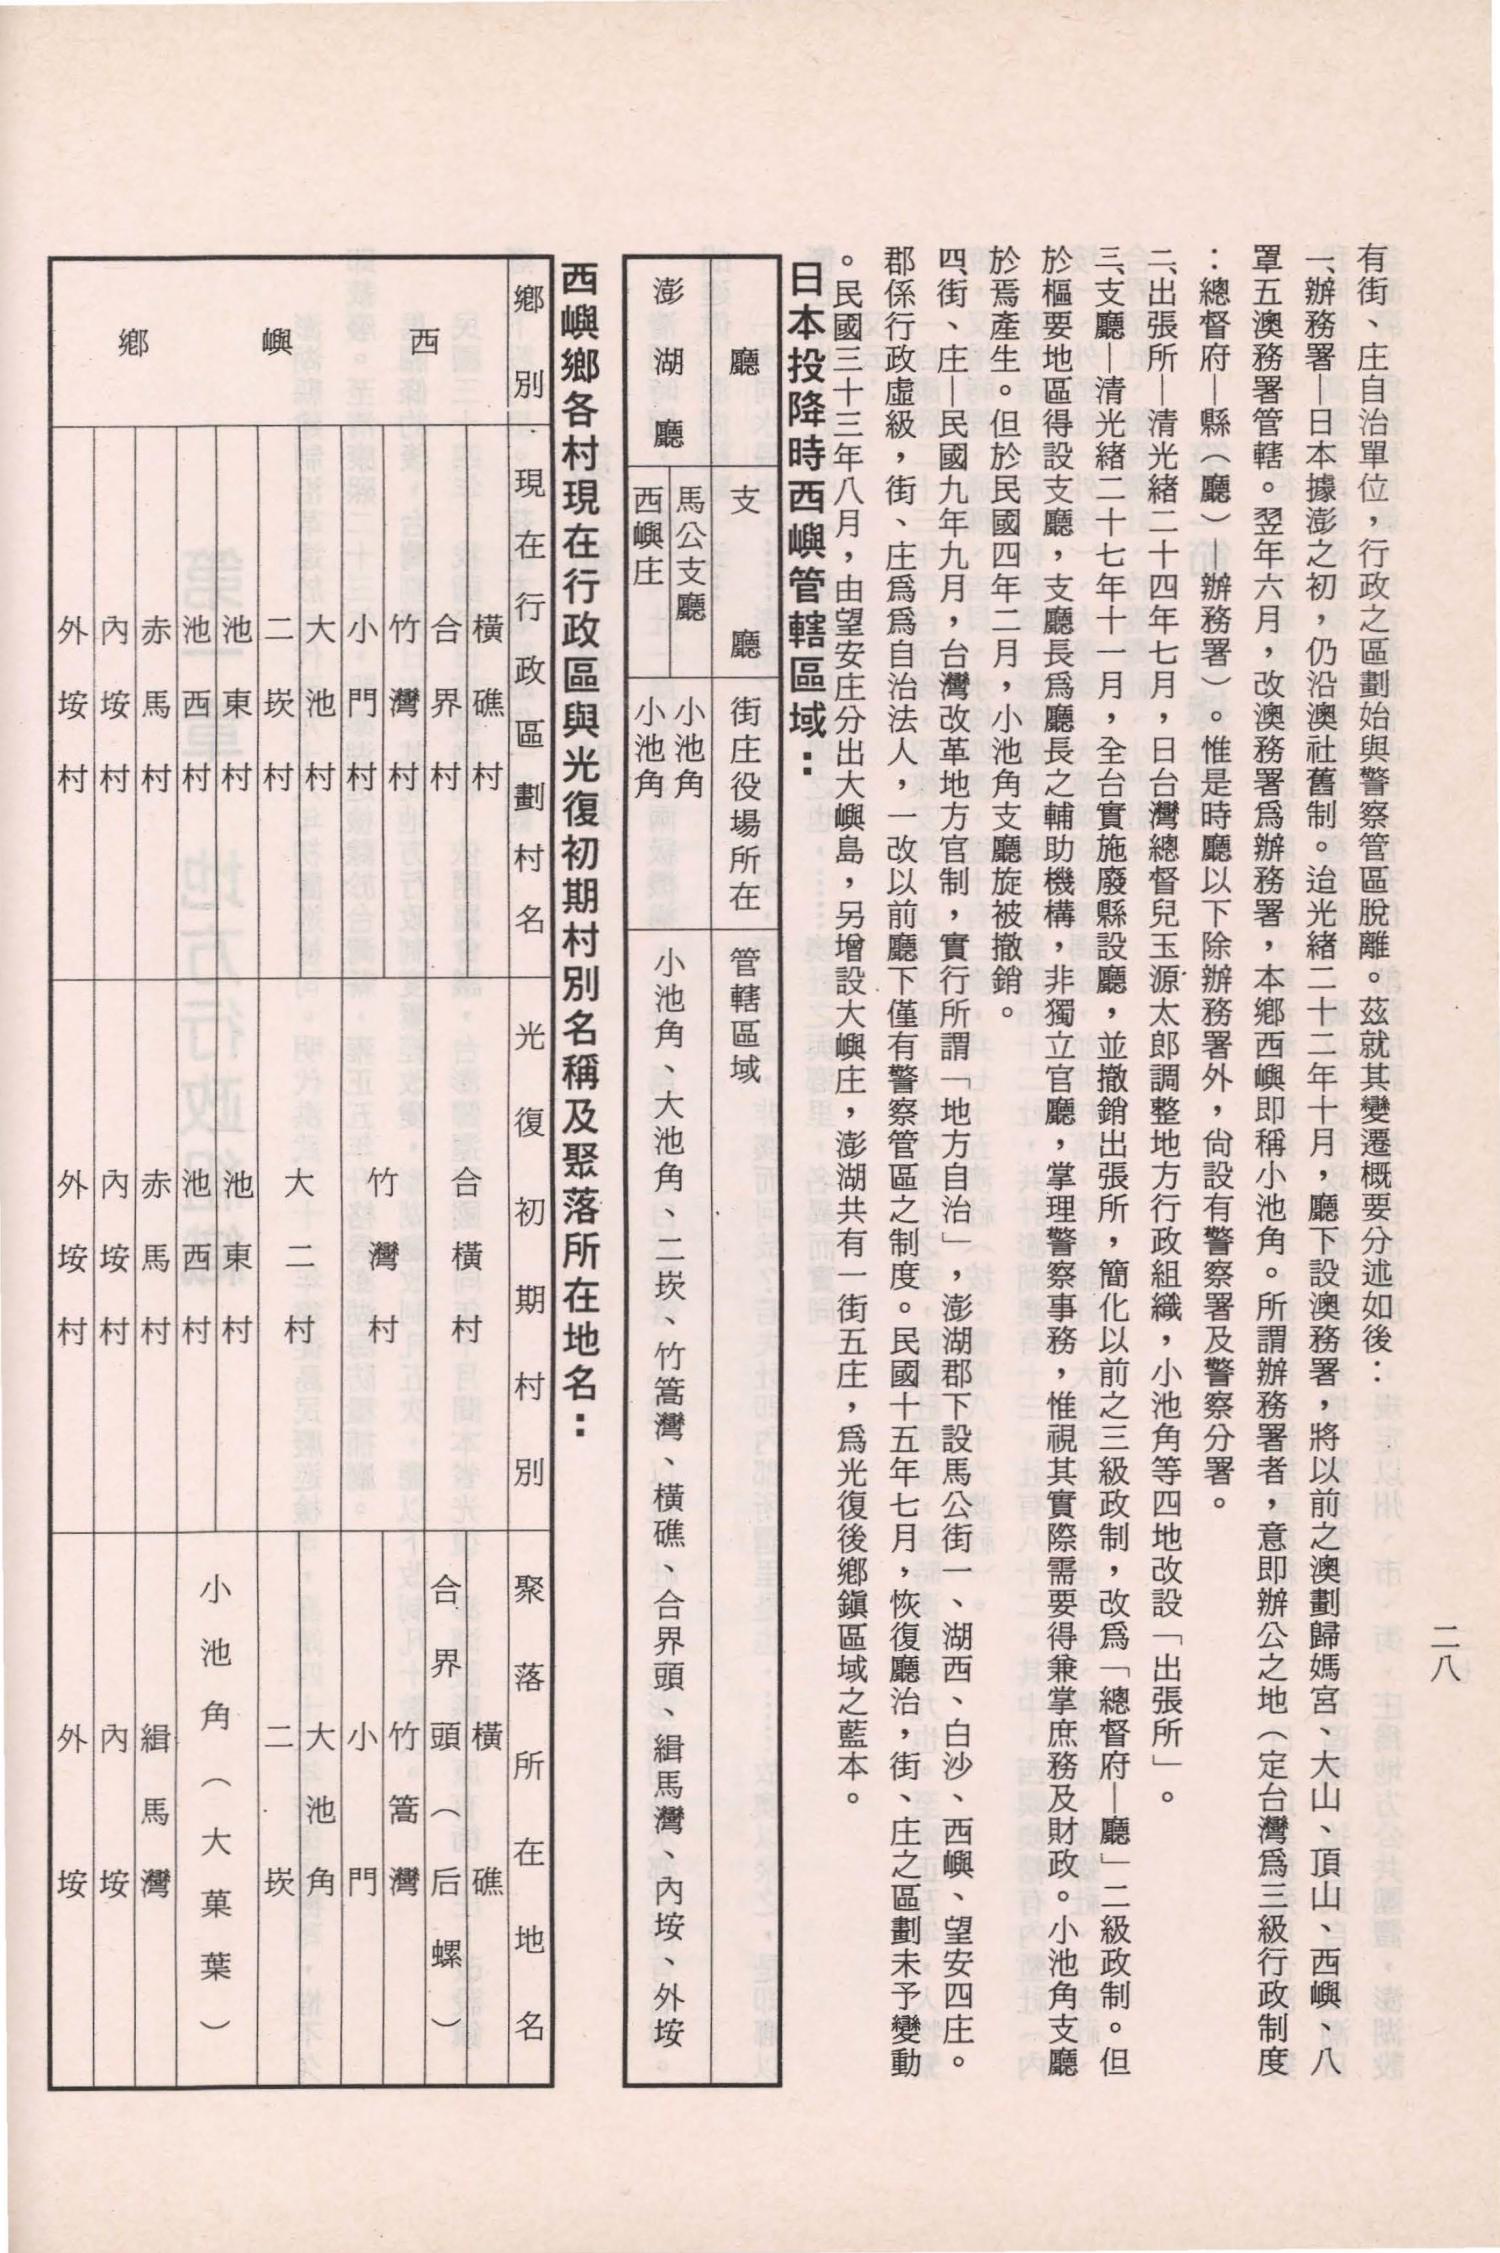 二八
有街、庄自治單位，行政之區劃始與警察管區脫離。茲就其變遷概要分述如後：
一、辦務署—日本據澎之初，仍沿澳社舊制。迨光緒二十二年十月，廳下設澳務署，將以前之澳劃歸媽宮、大山、頂山、西嶼、八
罩五澳務署管轄。翌年六月，改澳務署爲辦務署，本鄉西嶼即稱小池角。所謂辦務署者，意即辦公之地（定台灣爲三級行政制度
：總督府—縣（廳）—辦務署）。惟是時廳以下除辦務署外，尙設有警察署及警察分署。
二、出張所—清光緒二十四年七月，日台灣總督兒玉源太郎調整地方行政組織，小池角等四地改設「出張所」。
三、支廳—清光緒二十七年十一月，全台實施廢縣設廳，並撤銷出張所，簡化以前之三級政制，改爲「總督府—廳」二級政制。但
於樞要地區得設支廳，支廳長爲廳長之輔助機構，非獨立官廳，掌理警察事務，惟視其實際需要得兼掌庶務及財政。小池角支廳
於焉產生。但於民國四年二月，小池角支廳旋被撤銷。
四、街、庄—民國九年九月，台灣改革地方官制，實行所謂「地方自治」，澎湖郡下設馬公街一、湖西、白沙、西嶼、望安四庄。
郡係行政虛級，街、庄爲爲自治法人，一改以前廳下僅有警察管區之制度。民國十五年七月，恢復廳治，街、庄之區劃未予變動
。民國三十三年八月，由望安庄分出大嶼島，另增設大嶼庄，澎湖共有一街五庄，爲光復後鄉鎭區域之藍本。
日本投降時西嶼管轄區域：
廳 支廳 街庄役場所在 管轄區域
澎湖廳 馬公支廳 小池角
西嶼庄 小池角
小池角、大池角、二崁、竹篙灣、橫礁、合界頭、緝馬灣、內垵、外垵
西嶼鄉各村現在行政區與光復初期村別名稱及聚落所在地名：
鄉別 現在行政區劃村名 光復初期村別 聚落所在地名
西嶼鄉
橫礁村 合橫村 橫礁
合界村 合界頭（后螺）
竹灣村 竹灣村 竹篙灣
小門村 小門
大池村 大二村 大池角
二崁村 二崁
池東村 池東村 小池角（大菓葉）
池西村 池西村
赤馬村 赤馬村 緝馬灣
內垵村 內垵村 內垵
外垵村 外垵村 外垵